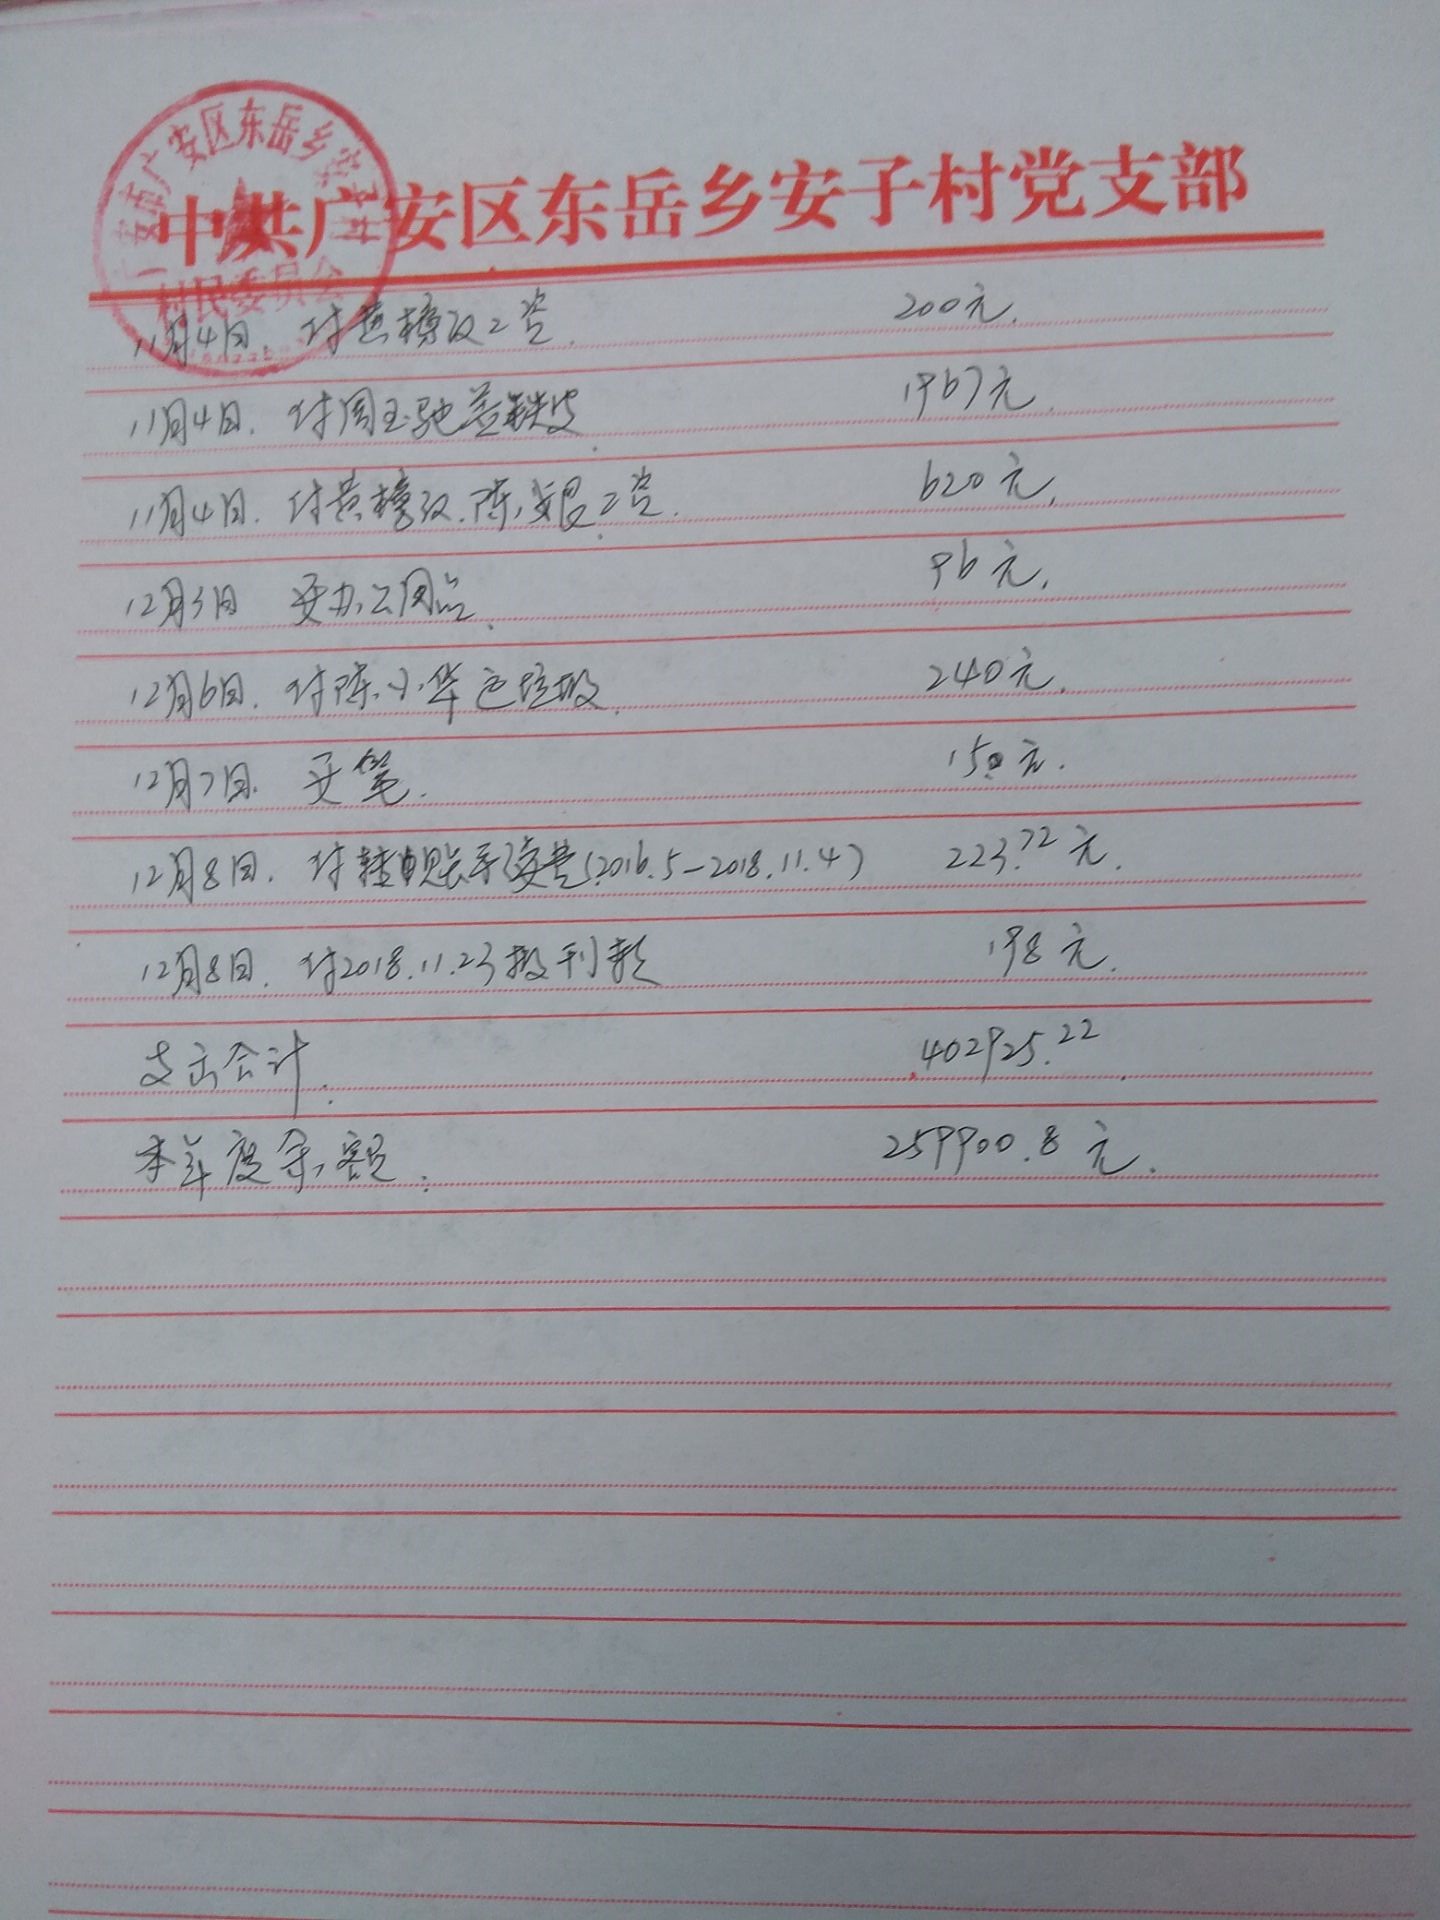 广安区东岳乡
中共广安区东岳乡安子村党支部
村民委员会
11月4日. 付黄 工资. 200元.
11月4日. 付周玉驰盖铁皮. 1967元.
11月4日. 付黄 陈 工资. 620元.
12月3日 买办公用品. 96元.
12月6日. 付陈小华 垃圾. 240元.
12月7日. 买笔. 150元.
12月8日. 付 账手续费(2016.5-2018.11.4) 223.72元.
12月8日. 付2018.11.23报刊款 198元.
支出合计. 402925.22
本年度余额. 259900.8元.